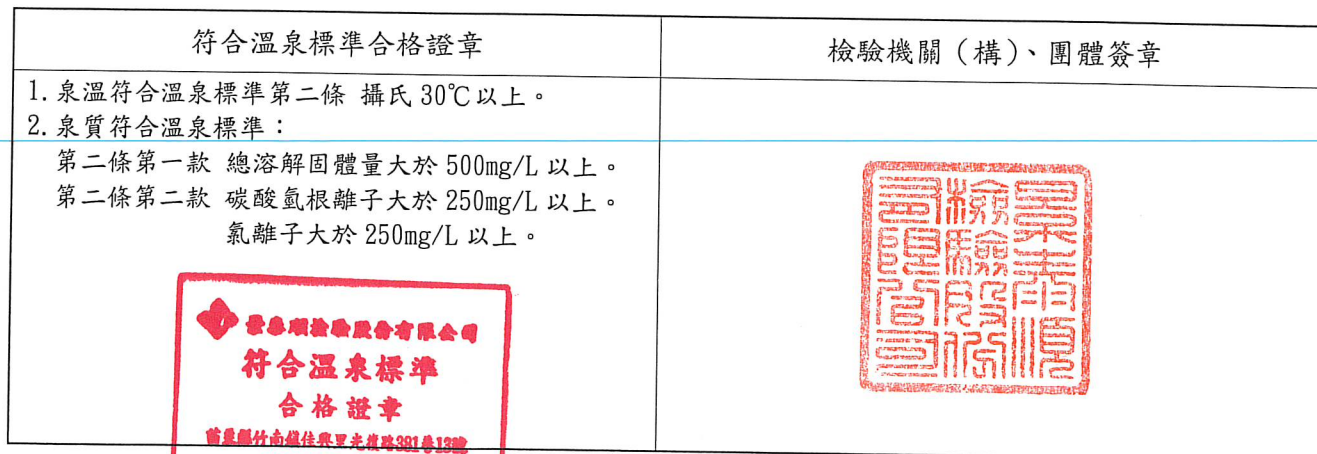 符合溫泉標準合格證章
檢驗機關（構）、團體簽章
1. 泉溫符合溫泉標準第二條 攝氏 30℃以上。
2. 泉質符合溫泉標準：
第二條第一款 總溶解固體量大於 500mg/L 以上。
第二條第二款 碳酸氫根離子大於 250mg/L 以上。
氯離子大於 250mg/L 以上。
景泰順檢驗股份有限公司
符合溫泉標準
合格證章
苗栗縣竹南鎮佳興里光復路381巷13號
景泰順
檢驗股份
有限公司